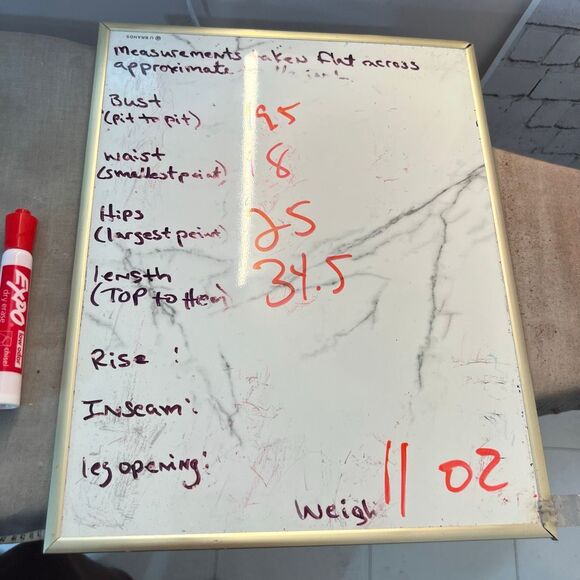 U BRANDS
Measurements taken flat across
approximate
Bust
(pit to pit)
waist
(smallest point) 8
Hips
(largest point) 25
length
(TOP to Hem) 34.5
Rise :
Inseam:
leg opening:
Weigh 11 oz
EXPO
dry erase
low odor
chisel